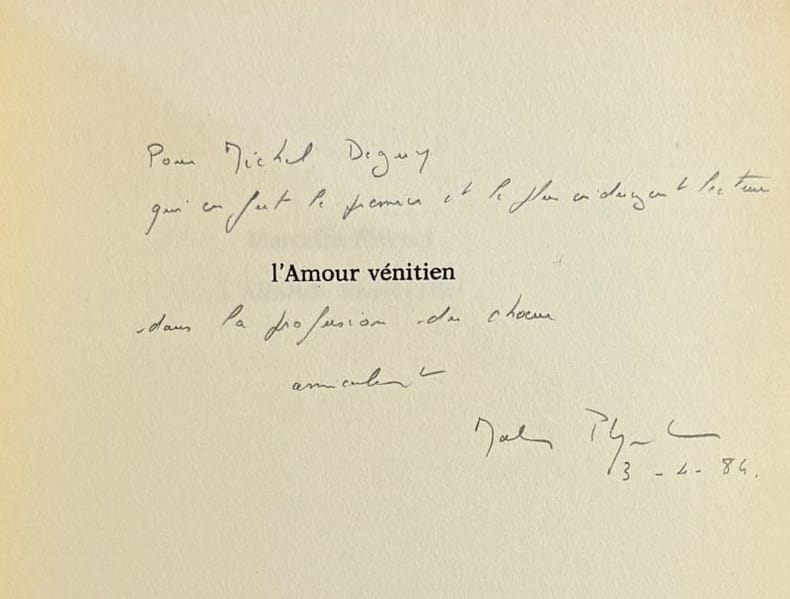 Pour Michel Deguy
qui en fut le premier et le plus indulgent lecteur
l'Amour vénitien
dans la profusion du choeur
amicalement
3-4-84.